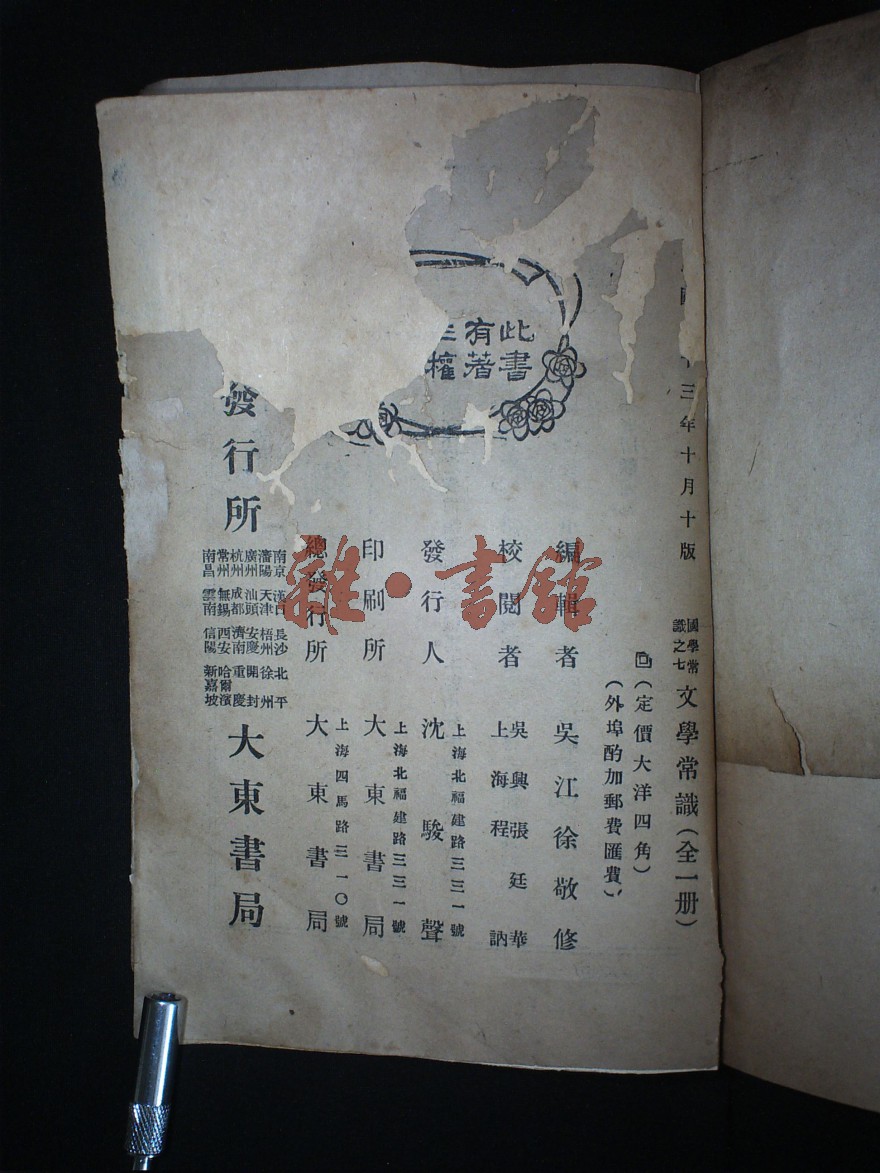 三年十月十版
國學常識之七 文學常識(全一册)
(定價大洋四角)
(外埠酌加郵費匯費)
此書
有著
權
編輯者 吳江徐敬修
校閱者 吳興張廷華
上海程訥
發行人 沈駿聲
上海北福建路三三一號
印刷所 大東書局
上海北福建路三三一號
總發行所 大東書局
上海四馬路三一〇號
發行所
南京 漢口 長沙 北平
瀋陽 天津 梧州 徐州
廣州 汕頭 安慶 開封
杭州 成都 濟南 重慶
常州 無錫 西安 哈爾濱
南昌 雲南 信陽 新嘉坡
大東書局
雜·書館